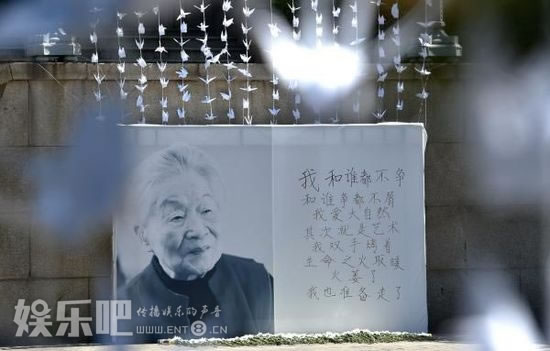 我和谁都不争
和谁争都不屑
我爱大自然
其次就是艺术
我双手烤着
生命之火取暖
火萎了
我也准备走了
娱乐吧
传播娱乐的声音
WWW.ENT8.CN